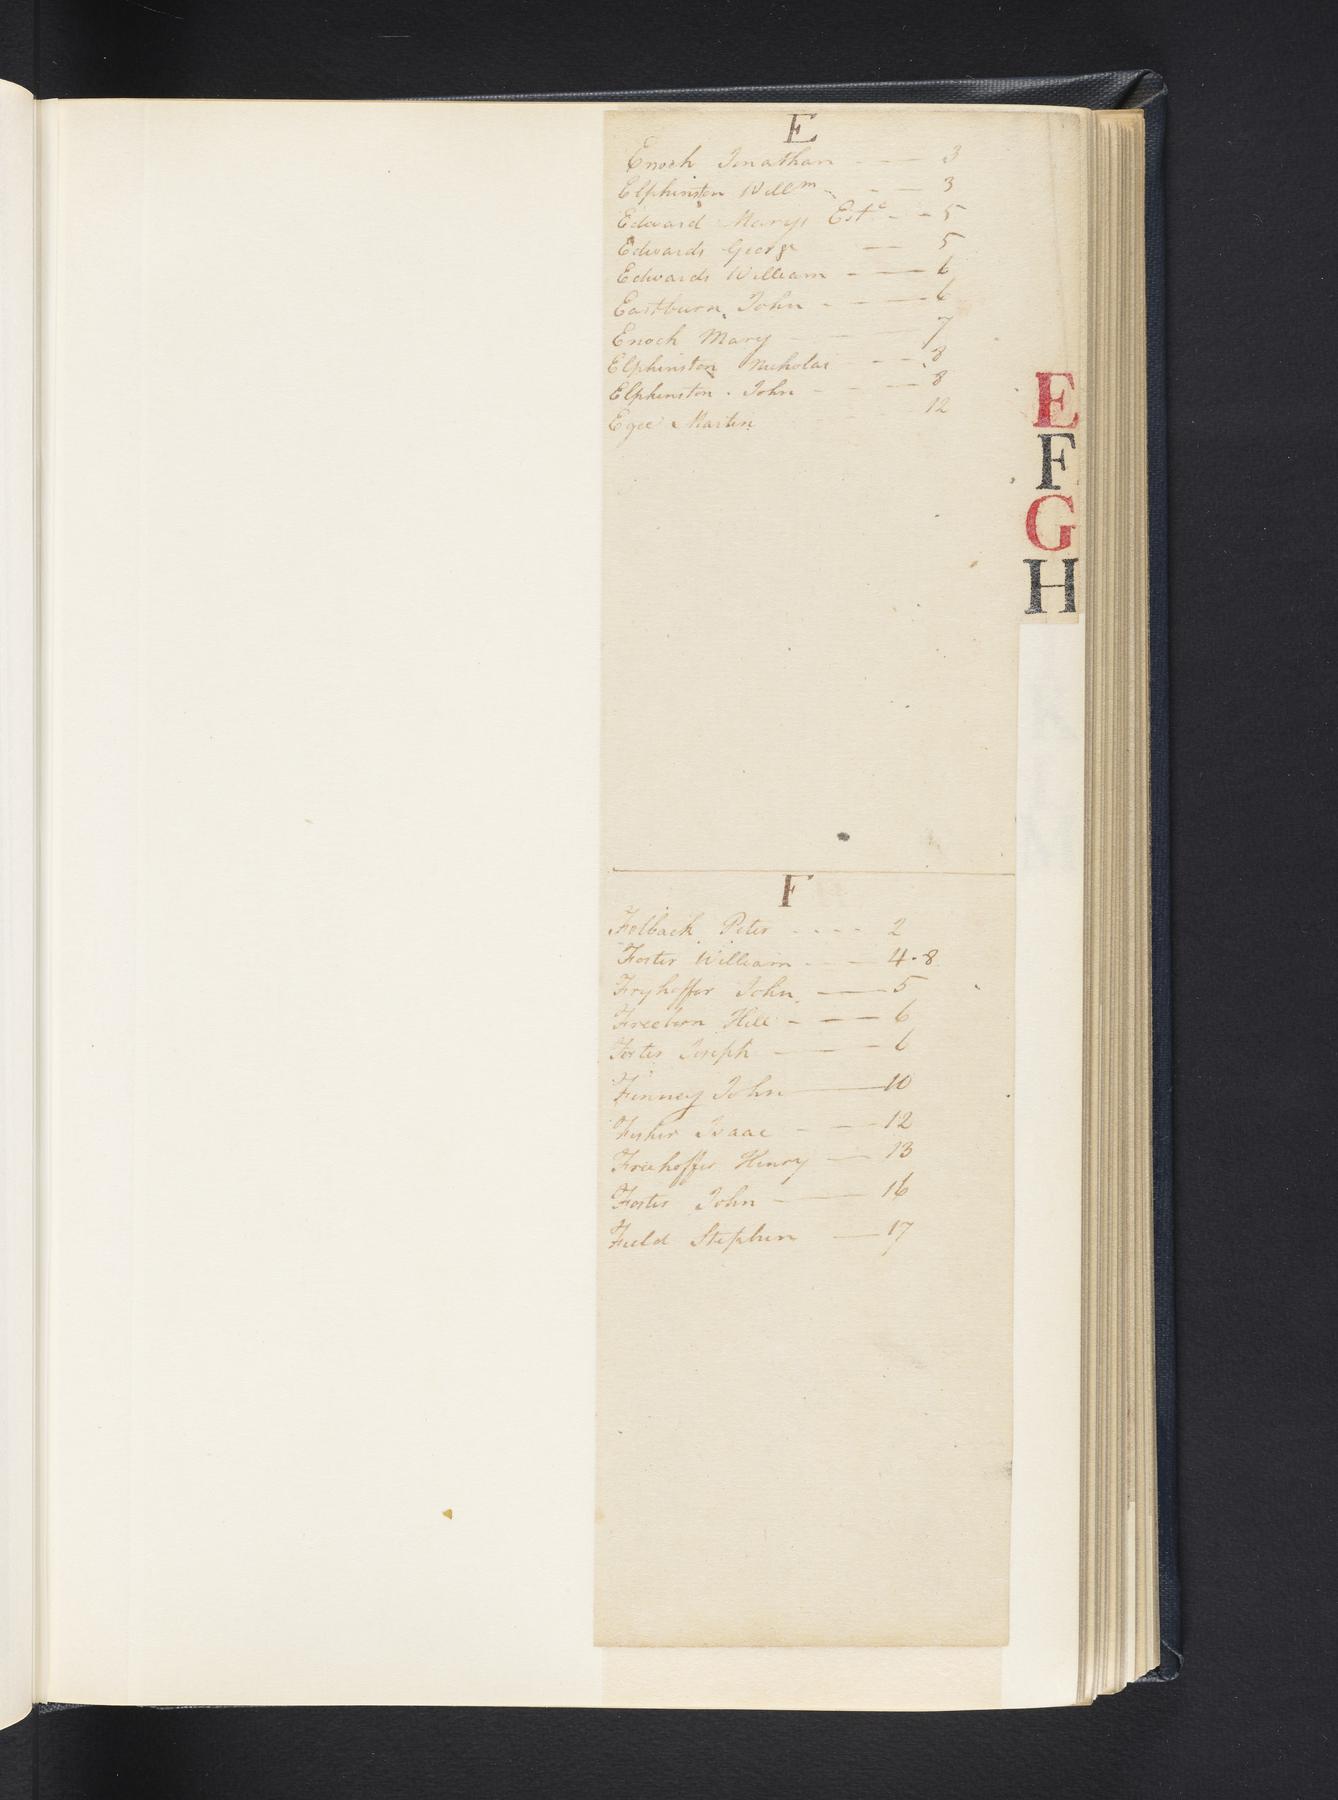 E
Enoch Jonathan - - - 3
Elphinston Will^m - - - 3
Edward Marys Est^e - - 5
Edwards George - - 5
Edwards William - - - 6
Eastburn John - - - 6
Enoch Mary - - - 7
Elphinston Nicholas - - - 8
Elphinston John - - - 8
Egee Martin - - 12
F
Folback Peter - - - - 2
Foster William - - - 4 . 8
Fryhoffer John - - 5
Freeborn Hill - - - 6
Foster Joseph - - - 6
Finney John - 10
Fisher Isaac - - - 12
Friehoffer Henry - - 13
Foster John - - 16
Field Stephen - - 17
E
F
G
H